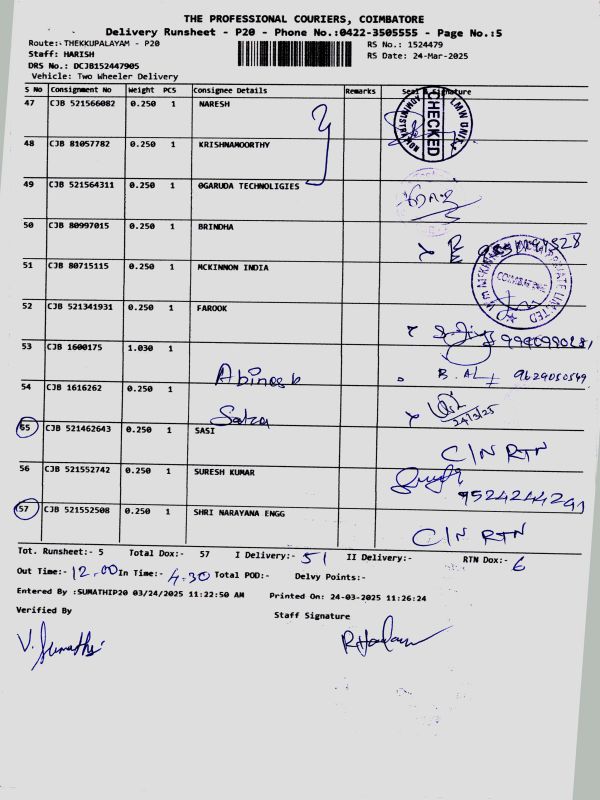 THE PROFESSIONAL COURIERS, COIMBATORE
Delivery Runsheet - P20 - Phone No.:0422-3505555 - Page No.:5
Route:-THEKKUPALAYAM - P20 RS No.: 1524479
Staff: HARISH RS Date: 24-Mar-2025
DRS No.: DCJB152447905
Vehicle: Two Wheeler Delivery
S No Consignment No Weight PCS Consignee Details Remarks Seal & Signature
47 CJB 521566082 0.250 1 NARESH
CHECKED
48 CJB 81057782 0.250 1 KRISHNAMOORTHY
49 CJB 521564311 0.250 1 OGARUDA TECHNOLIGIES
50 CJB 80997015 0.250 1 BRINDHA
51 CJB 80715115 0.250 1 MCKINNON INDIA
COIMBATORE
52 CJB 521341931 0.250 1 FAROOK
53 CJB 1600175 1.030 1
Abinesh B. AL 9629050549
54 CJB 1616262 0.250 1
24/3/25
55 CJB 521462643 0.250 1 SASI
C/N RTN
56 CJB 521552742 0.250 1 SURESH KUMAR
9524244291
57 CJB 521552508 0.250 1 SHRI NARAYANA ENGG
C/N RTN
Tot. Runsheet:- 5 Total Dox:- 57 I Delivery:- 51 II Delivery:- RTN Dox:- 6
Out Time:- 12.00 In Time:- 4.30 Total POD:- Delvy Points:-
Entered By :SUMATHIP20 03/24/2025 11:22:50 AM Printed On: 24-03-2025 11:26:24
Verified By Staff Signature
V. Sumathi